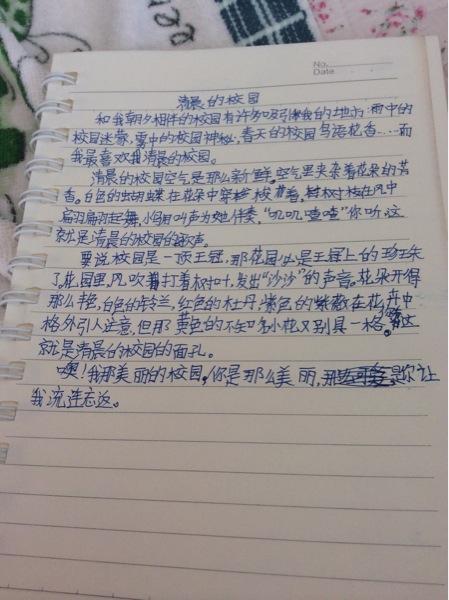 No.
Date
清晨的校园
和我朝夕相伴的校园有许多吸引我的地方：雨中的
校园迷蒙，雪中的校园神秘，春天的校园鸟语花香……而
我最喜欢我清晨的校园。
清晨的校园空气是那么新鲜。空气里夹杂着花朵的芳
香。白色的蝴蝶在花朵中穿梭着，树枝在风中
扁羽扁羽起舞，小鸟叫声为她伴奏，“叽叽喳喳”你听，这
就是清晨的校园的歌声。
要说校园是一顶王冠，那花园业是王冠上的珍珠
了。花园里，风吹着打着树叶，发出“沙沙”的声音。花朵开得
那么艳，白色的铃兰，红色的牡丹，紫色的紫薇在花卉中
格外引人注意，但那黄色的不知名小花又别具一格。这
就是清晨的校园的面孔。
噢！我那美丽的校园。你是那么美丽，是你让
我流连忘返。